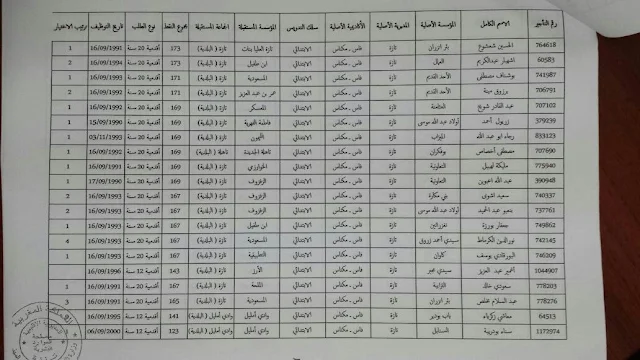 رقم التأجير الاسم الكامل المؤسسة الأصلية المديرية الأصلية الأكاديمية الأصلية سلك التدريس المؤسسة المستقبلة الجماعة المستقبلة مجموع النقط نوع الطلب تاريخ التوظيف ترتيب الاختيار
764618 الحسين شعشوع بئر ازران تازة فاس ـ مكناس الابتدائي تازة العليا بنات تازة ( البلدية) 173 أقدمية 20 سنة 16/09/1991 1
60583 تازة فاس ـ مكناس الابتدائي ابن طفيل تازة ( البلدية) 173 أقدمية 20 سنة 16/09/1994 2
741987 بوشتاف مصطفى الأحد القديم تازة فاس ـ مكناس الابتدائي المسعودية تازة ( البلدية) 171 أقدمية 20 سنة 16/09/1993 1
706791 مرزوق مينة الأحد القديم تازة فاس ـ مكناس الابتدائي عمر بن عبد العزيز تازة ( البلدية) 171 أقدمية 20 سنة 16/09/1992 2
707102 عبد القادر شويخ تازة فاس ـ مكناس الابتدائي المعسكر تازة ( البلدية) 169 أقدمية 20 سنة 16/09/1991 1
379239 زريول أحمد أولاد عبد الله موسى تازة فاس ـ مكناس الابتدائي فاطمة الفهرية تازة ( البلدية) 169 أقدمية 20 سنة 15/09/1990 1
833123 رجاء ابو عبد الله تازة فاس ـ مكناس الابتدائي تاهلة ( البلدية) 169 أقدمية 20 سنة 03/11/1993 1
707690 مصطفى أخصاص بوفكران تازة فاس ـ مكناس الابتدائي تاهلة الجديدة تاهلة ( البلدية) 169 أقدمية 20 سنة 16/09/1992 1
775940 مليكة لهبيل التعاونية تازة فاس ـ مكناس الابتدائي الخوارزمي تازة ( البلدية) 169 أقدمية 20 سنة 16/09/1991 1
390948 عبد الله التعاونية تازة فاس ـ مكناس الابتدائي الزفزوف تازة ( البلدية) 169 أقدمية 20 سنة 17/09/1990 1
740337 سعيد اشنوي بني مكارة تازة فاس ـ مكناس الابتدائي الزفزوف تازة ( البلدية) 167 أقدمية 20 سنة 16/09/1993 2
737761 بنعبو عبد الحميد أولاد عبد الله موسى تازة فاس ـ مكناس الابتدائي الزفزوف تازة ( البلدية) 167 أقدمية 20 سنة 16/09/1993 2
749862 جعفر بورزة تازة فاس ـ مكناس الابتدائي ابن طفيل تازة ( البلدية) 167 أقدمية 20 سنة 16/09/1993 1
742145 نورالدين الكرماط سيدي أحمد زروق تازة فاس ـ مكناس الابتدائي المسعودية تازة ( البلدية) 167 أقدمية 20 سنة 16/09/1993 4
746209 يوسف كلوان تازة فاس ـ مكناس الابتدائي التطبيقية تازة ( البلدية) 167 أقدمية 20 سنة 16/09/1993 1
1044907 عبد العزيز تازة فاس ـ مكناس الابتدائي الأرز تازة ( البلدية) 143 أقدمية 12 سنة 16/09/1996 1
778203 سعودي خالد تازة فاس ـ مكناس الابتدائي القلعة تازة ( البلدية) 165 أقدمية 20 سنة
778276 عبد السلام مخلص بئر ازران تازة فاس ـ مكناس الابتدائي المسعودية تازة ( البلدية) 165 أقدمية 20 سنة 3
64513 زكرياء باب بودير تازة فاس ـ مكناس الابتدائي وادي أمليل وادي أمليل ( البلدية) 141 أقدمية 12 سنة 1
1172974 سناء بودريبة السنابل تازة فاس ـ مكناس الابتدائي وادي أمليل وادي أمليل ( البلدية) 123 أقدمية 12 سنة 06/09/2000